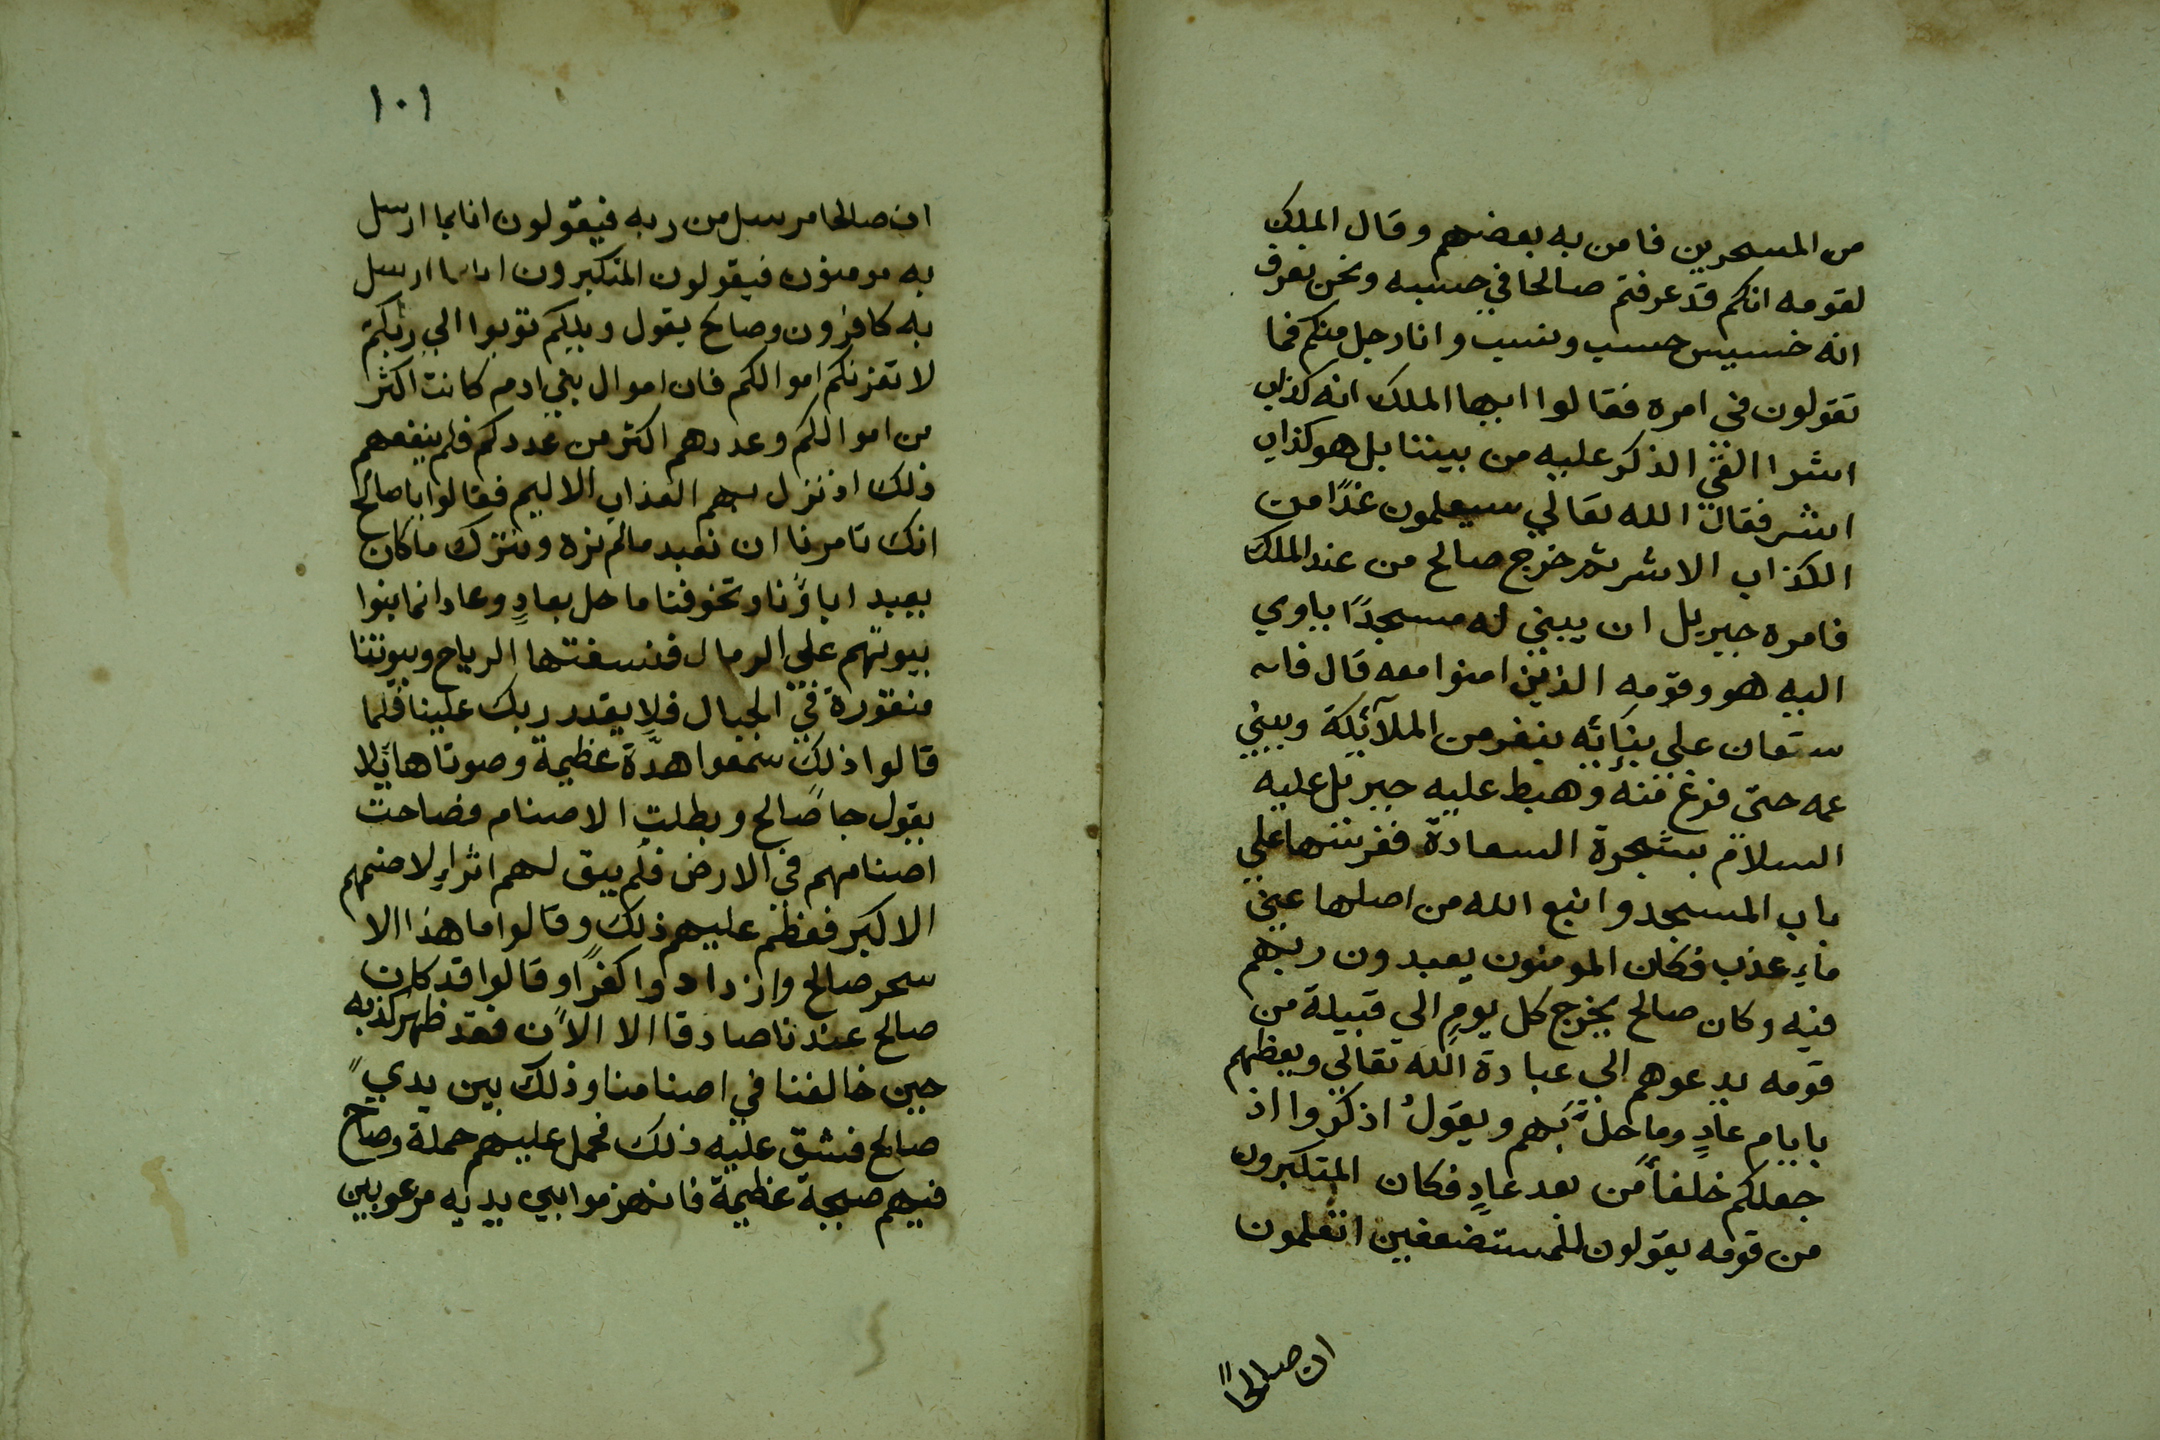 من المسحرين فامن به بعضهم وقال الملك
لقومه انكم قد عرفتم صالحا في حسبه ونحن نعرف
انه خسيس حسب ونسب وانا رجل منكم فما
تقولون في امره فقالوا ايها الملك انه كذاب
اشر االقي الذكر عليه من بيننا بل هو كذاب
اشر فقال الله تعالي سيعلمون غدًا من
الكذاب الاشر ثم خرج صالح من عند الملك
فامره جبريل ان يبني له مسجدًا ياوي
اليه هو وقومه الذين امنوا معه قال فا
ستعان علي بنائه بنفر من الملآئكة وبيني
عمه حتى فرغ منه وهبط عليه جبريل عليه
السلام بشجرة السعادة فغرسها علي
باب المسجد وانبع الله من اصلها عين
ماءٍ عذب فكان المومنون يعبدون ربهم
فيه وكان صالح يخرج كل يومٍ الي قبيلة من
قومه يدعوهم الي عبادة الله تعالي ويعظهم
بايام عادٍ وما حلَّ بهم ويقولُ اذكروا اذ
جعلكم خلفأ من بعد عادٍ فكان المتكبرون
من قومه يقولون للمستضعفين اتعلمون
ان صالحاً
١٠١
ان صالحا مرسل من ربه فيقولون انا بما ارسل
به مومنون فيقولون المتكبرون انا بما ارسل
به كافرون وصالح يقول ويلكم توبوا الي ربكم
لا تغرنكم اموالكم فان اموال بني ادم كانت اكثر
من اموالكم وعددهم اكثر من عددكم فلم ينفعهم
ذلك اذ نزل بهم العذاب الاليم فقالوا يا صالح
انك تامرنا ان نعبد مالم نره ونترك ما كان
يعبد اباؤنا وتخوفنا ما حل بعادٍ وعاد انما بنوا
بيوتهم علي الرمال فنسفتها الرياح وبيوتنا
منقورة في الجبال فلا يقدر ربك علينا فلما
قالوا ذلك سمعوا هدَّة عظيمة وصوتا هايلا
يقول جا صالح وبطلت الاصنام فضاحت
اصنامهم في الارض فلم يبق لهم اثراءٍ لا صنمهم
الاكبر فعظم عليهم ذلك وقالوا ما هذا الا
سحر صالح وازدادوا كفرًا وقالوا قد كان
صالح عندنا صادقا الا الآن فقد ظهر كذبه
حين خالفنا في اصنامنا وذلك بين يدي
صالح فشق عليه ذلك فحمل عليهم حملة وصاح
فيهم صيحة عظيمة فانهزموا بين يديه مرعوبين